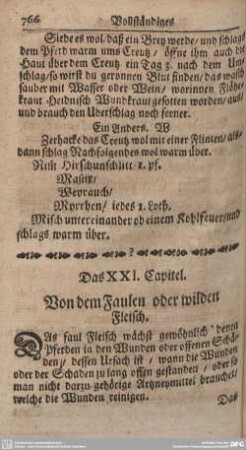 766 Vollständiges
Siede es wol/ daß ein Brey werde/ und schlags
dem Pferd warm ums Creutz/ öffne ihm auch die
Haut über dem Creutz ein Tag 3. nach dem Um-
schlag/ so wirst du geronnen Blut finden/ das wasch
sauber mit Wasser oder Wein/ worinnen Flöhe-
kraut Heidnisch Wundkraut gesotten worden/ aus/
und brauch den Uberschlag noch ferner.
Ein Anders. W
Zerhacke das Creutz wol mit einer Flinten/ als-
dann schlag Nachfolgendes wol warm über.
Nim Hirschunschlitt 1. pf.
Mastix/
Weyrauch/
Myrrhen/ jedes 1. Loth.
Misch untereinander ob einem Kohlfeuer/ und
schlags warm über.
Das XXI. Capitel.
Von dem Faulen oder wilden
Fleisch.
Das faul Fleisch wächst gewöhnlich denen
Pferden in den Wunden oder offenen Schä-
den/ dessen Ursach ist/ wann die Wunden
oder der Schaden zu lang offen gestanden/ oder so
man nicht darzu gehörige Artzneymittel brauchet/
welche die Wunden reinigen.
Das